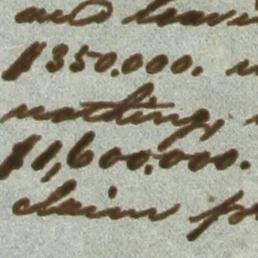 and leavi
$350.000.
nothing,
$1,600,000.
claim p